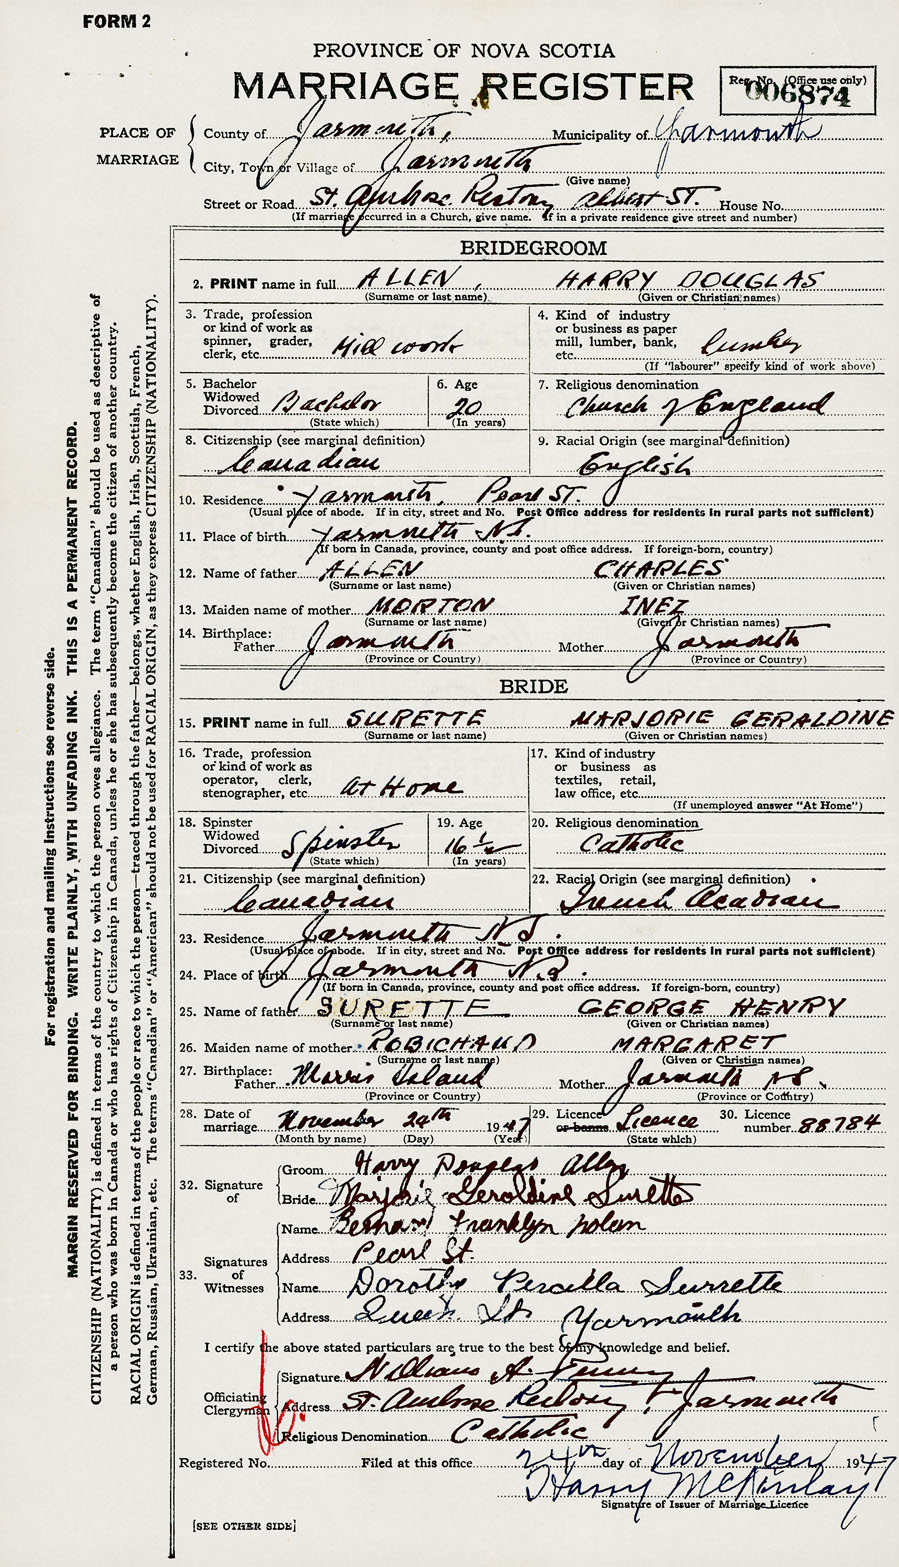 FORM 2
PROVINCE OF NOVA SCOTIA
MARRIAGE REGISTER
Reg. No. (Office use only)
006874
PLACE OF MARRIAGE
County of Yarmouth, Municipality of Yarmouth
City, Town or Village of Yarmouth
(Give name)
Street or Road St. Ambrose Rectory Albert St. House No.
(If marriage occurred in a Church, give name. If in a private residence give street and number)
BRIDEGROOM
2. PRINT name in full ALLEN, HARRY DOUGLAS
(Surname or last name) (Given or Christian names)
3. Trade, profession or kind of work as spinner, grader, clerk, etc. Mill work
4. Kind of industry or business as paper mill, lumber, bank, etc. Lumber
(If "labourer" specify kind of work above)
5. Bachelor Widowed Divorced Bachelor
(State which)
6. Age 20
(In years)
7. Religious denomination
Church of England
8. Citizenship (see marginal definition)
Canadian
9. Racial Origin (see marginal definition)
English
10. Residence Yarmouth, Pearl St.
(Usual place of abode. If in city, street and No. Post Office address for residents in rural parts not sufficient)
11. Place of birth Yarmouth N.S.
(If born in Canada, province, county and post office address. If foreign-born, country)
12. Name of father ALLEN CHARLES
(Surname or last name) (Given or Christian names)
13. Maiden name of mother MORTON INEZ
(Surname or last name) (Given or Christian names)
14. Birthplace: Father Yarmouth Mother Yarmouth
(Province or Country) (Province or Country)
BRIDE
15. PRINT name in full SURETTE MARJORIE GERALDINE
(Surname or last name) (Given or Christian names)
16. Trade, profession or kind of work as operator, clerk, stenographer, etc. At Home
17. Kind of industry or business as textiles, retail, law office, etc.
(If unemployed answer "At Home")
18. Spinster Widowed Divorced Spinster
(State which)
19. Age 16 ½
(In years)
20. Religious denomination
Catholic
21. Citizenship (see marginal definition)
Canadian
22. Racial Origin (see marginal definition)
French Acadian
23. Residence Yarmouth N.S.
(Usual place of abode. If in city, street and No. Post Office address for residents in rural parts not sufficient)
24. Place of birth Yarmouth N.S.
(If born in Canada, province, county and post office address. If foreign-born, country)
25. Name of father SURETTE GEORGE HENRY
(Surname or last name) (Given or Christian names)
26. Maiden name of mother ROBICHAUD MARGARET
(Surname or last name) (Given or Christian names)
27. Birthplace: Father Morris Island Mother Yarmouth NS
(Province or Country) (Province or Country)
28. Date of marriage November 24th 1947
(Month by name) (Day) (Year)
29. Licence or banns Licence
(State which)
30. Licence number 88784
32. Signature of
Groom Harry Douglas Allen
Bride Marjorie Geraldine Surette
33. Signatures of Witnesses
Name Bernard Franklyn Nolan
Address Pearl St.
Name Dorothy Percilla Surrette
Address Queen St. Yarmouth
I certify the above stated particulars are true to the best of my knowledge and belief.
Officiating Clergyman
Signature William A. Penny
Address St. Ambrose Rectory, Yarmouth
Religious Denomination Catholic
Registered No. Filed at this office 24th day of November 1947
Harry McKinlay
Signature of Issuer of Marriage Licence
[SEE OTHER SIDE]
For registration and mailing instructions see reverse side.
MARGIN RESERVED FOR BINDING. WRITE PLAINLY, WITH UNFADING INK. THIS IS A PERMANENT RECORD.
CITIZENSHIP (NATIONALITY) is defined in terms of the country to which the person owes allegiance. The term "Canadian" should be used as descriptive of
a person who was born in Canada or who has rights of Citizenship in Canada, unless he or she has subsequently become the citizen of another country.
RACIAL ORIGIN is defined in terms of the people or race to which the person—traced through the father—belongs, whether English, Irish, Scottish, French,
German, Russian, Ukrainian, etc. The terms "Canadian" or "American" should not be used for RACIAL ORIGIN, as they express CITIZENSHIP (NATIONALITY).